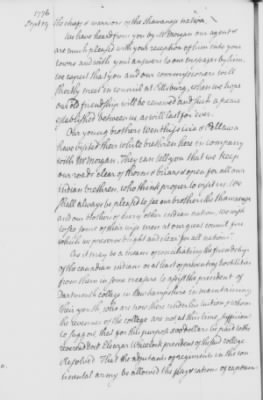 1776
Sept 19.
To the chiefs & warriors of the Shawanese nation.
We have heard from you by Mr Morgan our agent &
are much pleased with your reception of him into your
towns and with your answers to our message by him,
we expect that you and our commissioners will
shortly meet in council at Pittsburg, when we hope
our old friendship will be renewed and such a peace
established between us as will last for ever.
Our young brothers
have visited their white brethren here in company
with Mr Morgan. They can tell you that we keep
our roads clear of thorns & briars open for all our
indian brethren, who think proper to visit us. We
shall always be pleased to see our brothers the Shawanese
and our brothers of every other indian nation, we wish
to see some of their wise men at our great council fire
which in present bright and clear for all nations.
As it may be a means of conciliating the friendship
of the canadian indians or at least of preventing hostilities
from them in some measure to assist the president of
Dartmouth college in Newhampshire in maintaining
their youth, who are now there under his tuition & whom
the revenues of the college are not at this time sufficient
to support that for this purpose 500 dollars be paid to the
reverend doct Eleazar Wheelock president of the said college
Resolved That the adjutants of regiments in the con
tinental army be allowed the pay & rations of captains